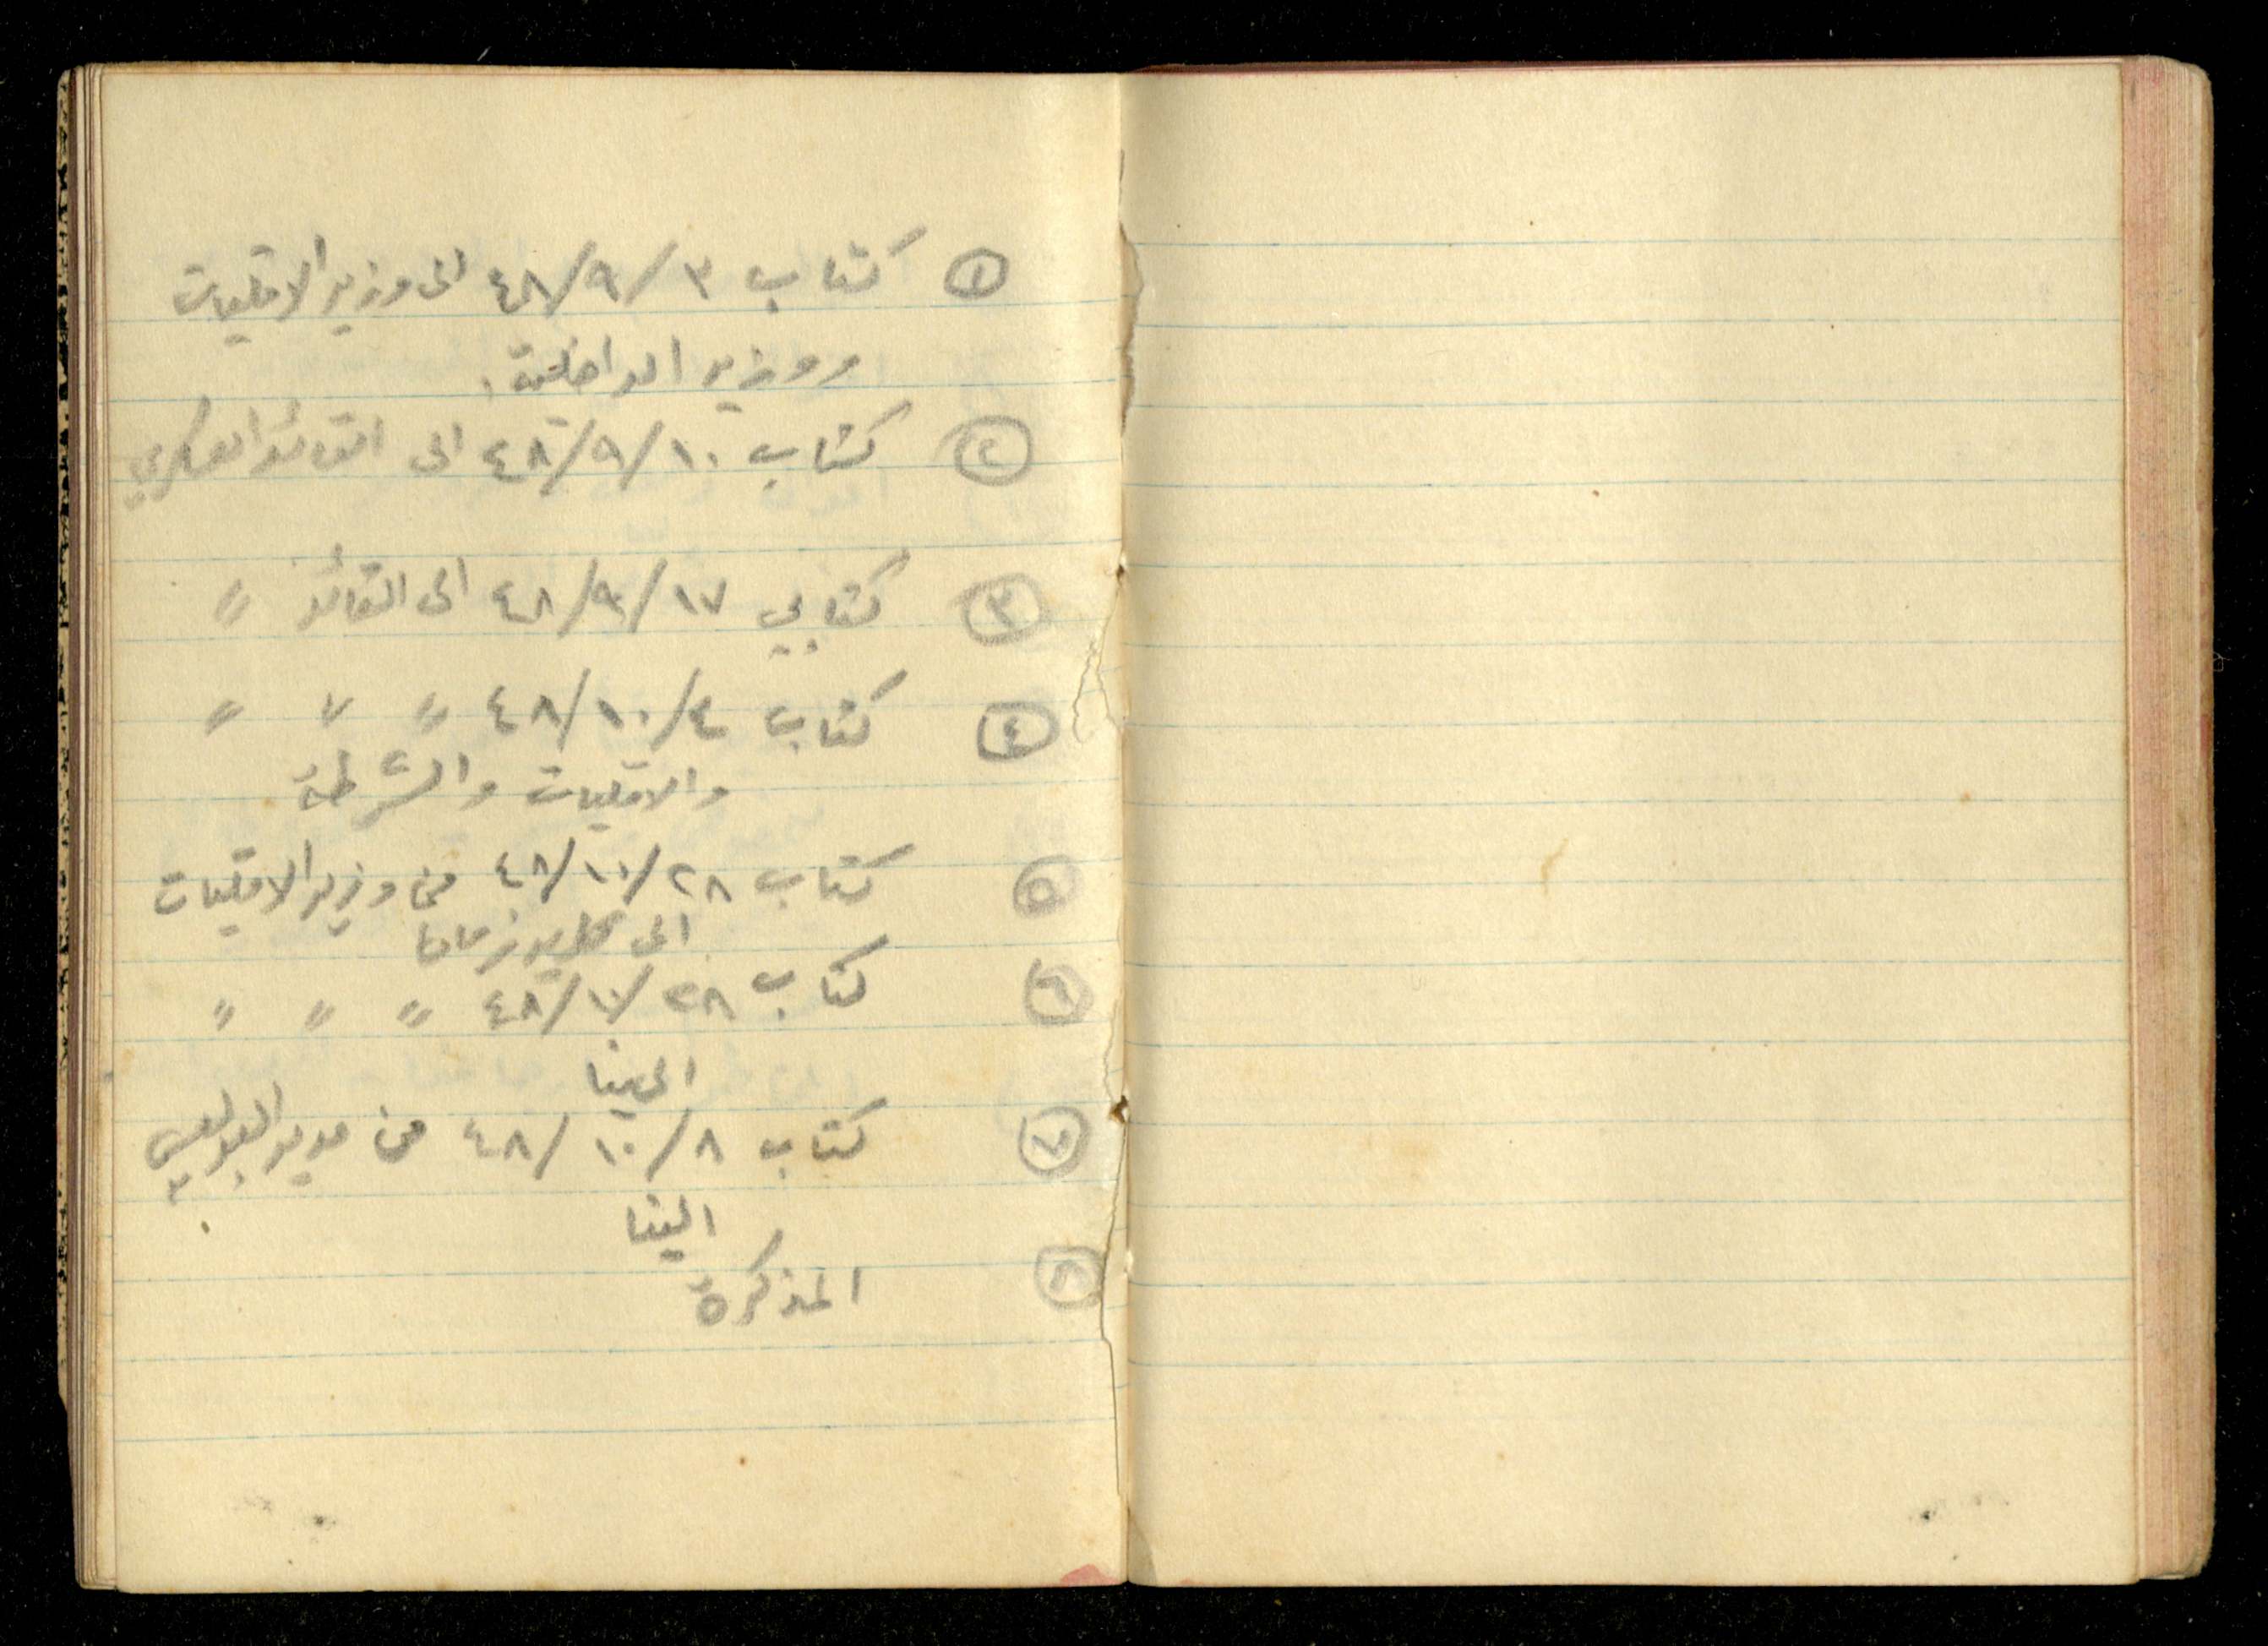 ١ كتاب ٣/٩/٤٨ الى وزير الاقليات
ووزير الداخلية.
٢ كتاب ١٠/٩/٤٨ الى القائد العسكري
٣ كتابي ١٧/٩/٤٨ الى القائد "
٤ كتاب ٤/١٠/٤٨ " " "
والاقليات والشرطة
٥ كتاب ٢٨/١٠/٤٨ من وزير الاقليات
الى
٦ كتاب ٢٨/١٠/٤٨ " " "
الينا
٧ كتاب ٨/١٠/٤٨ من مدير البوليس
الينا
٨ المذكرة